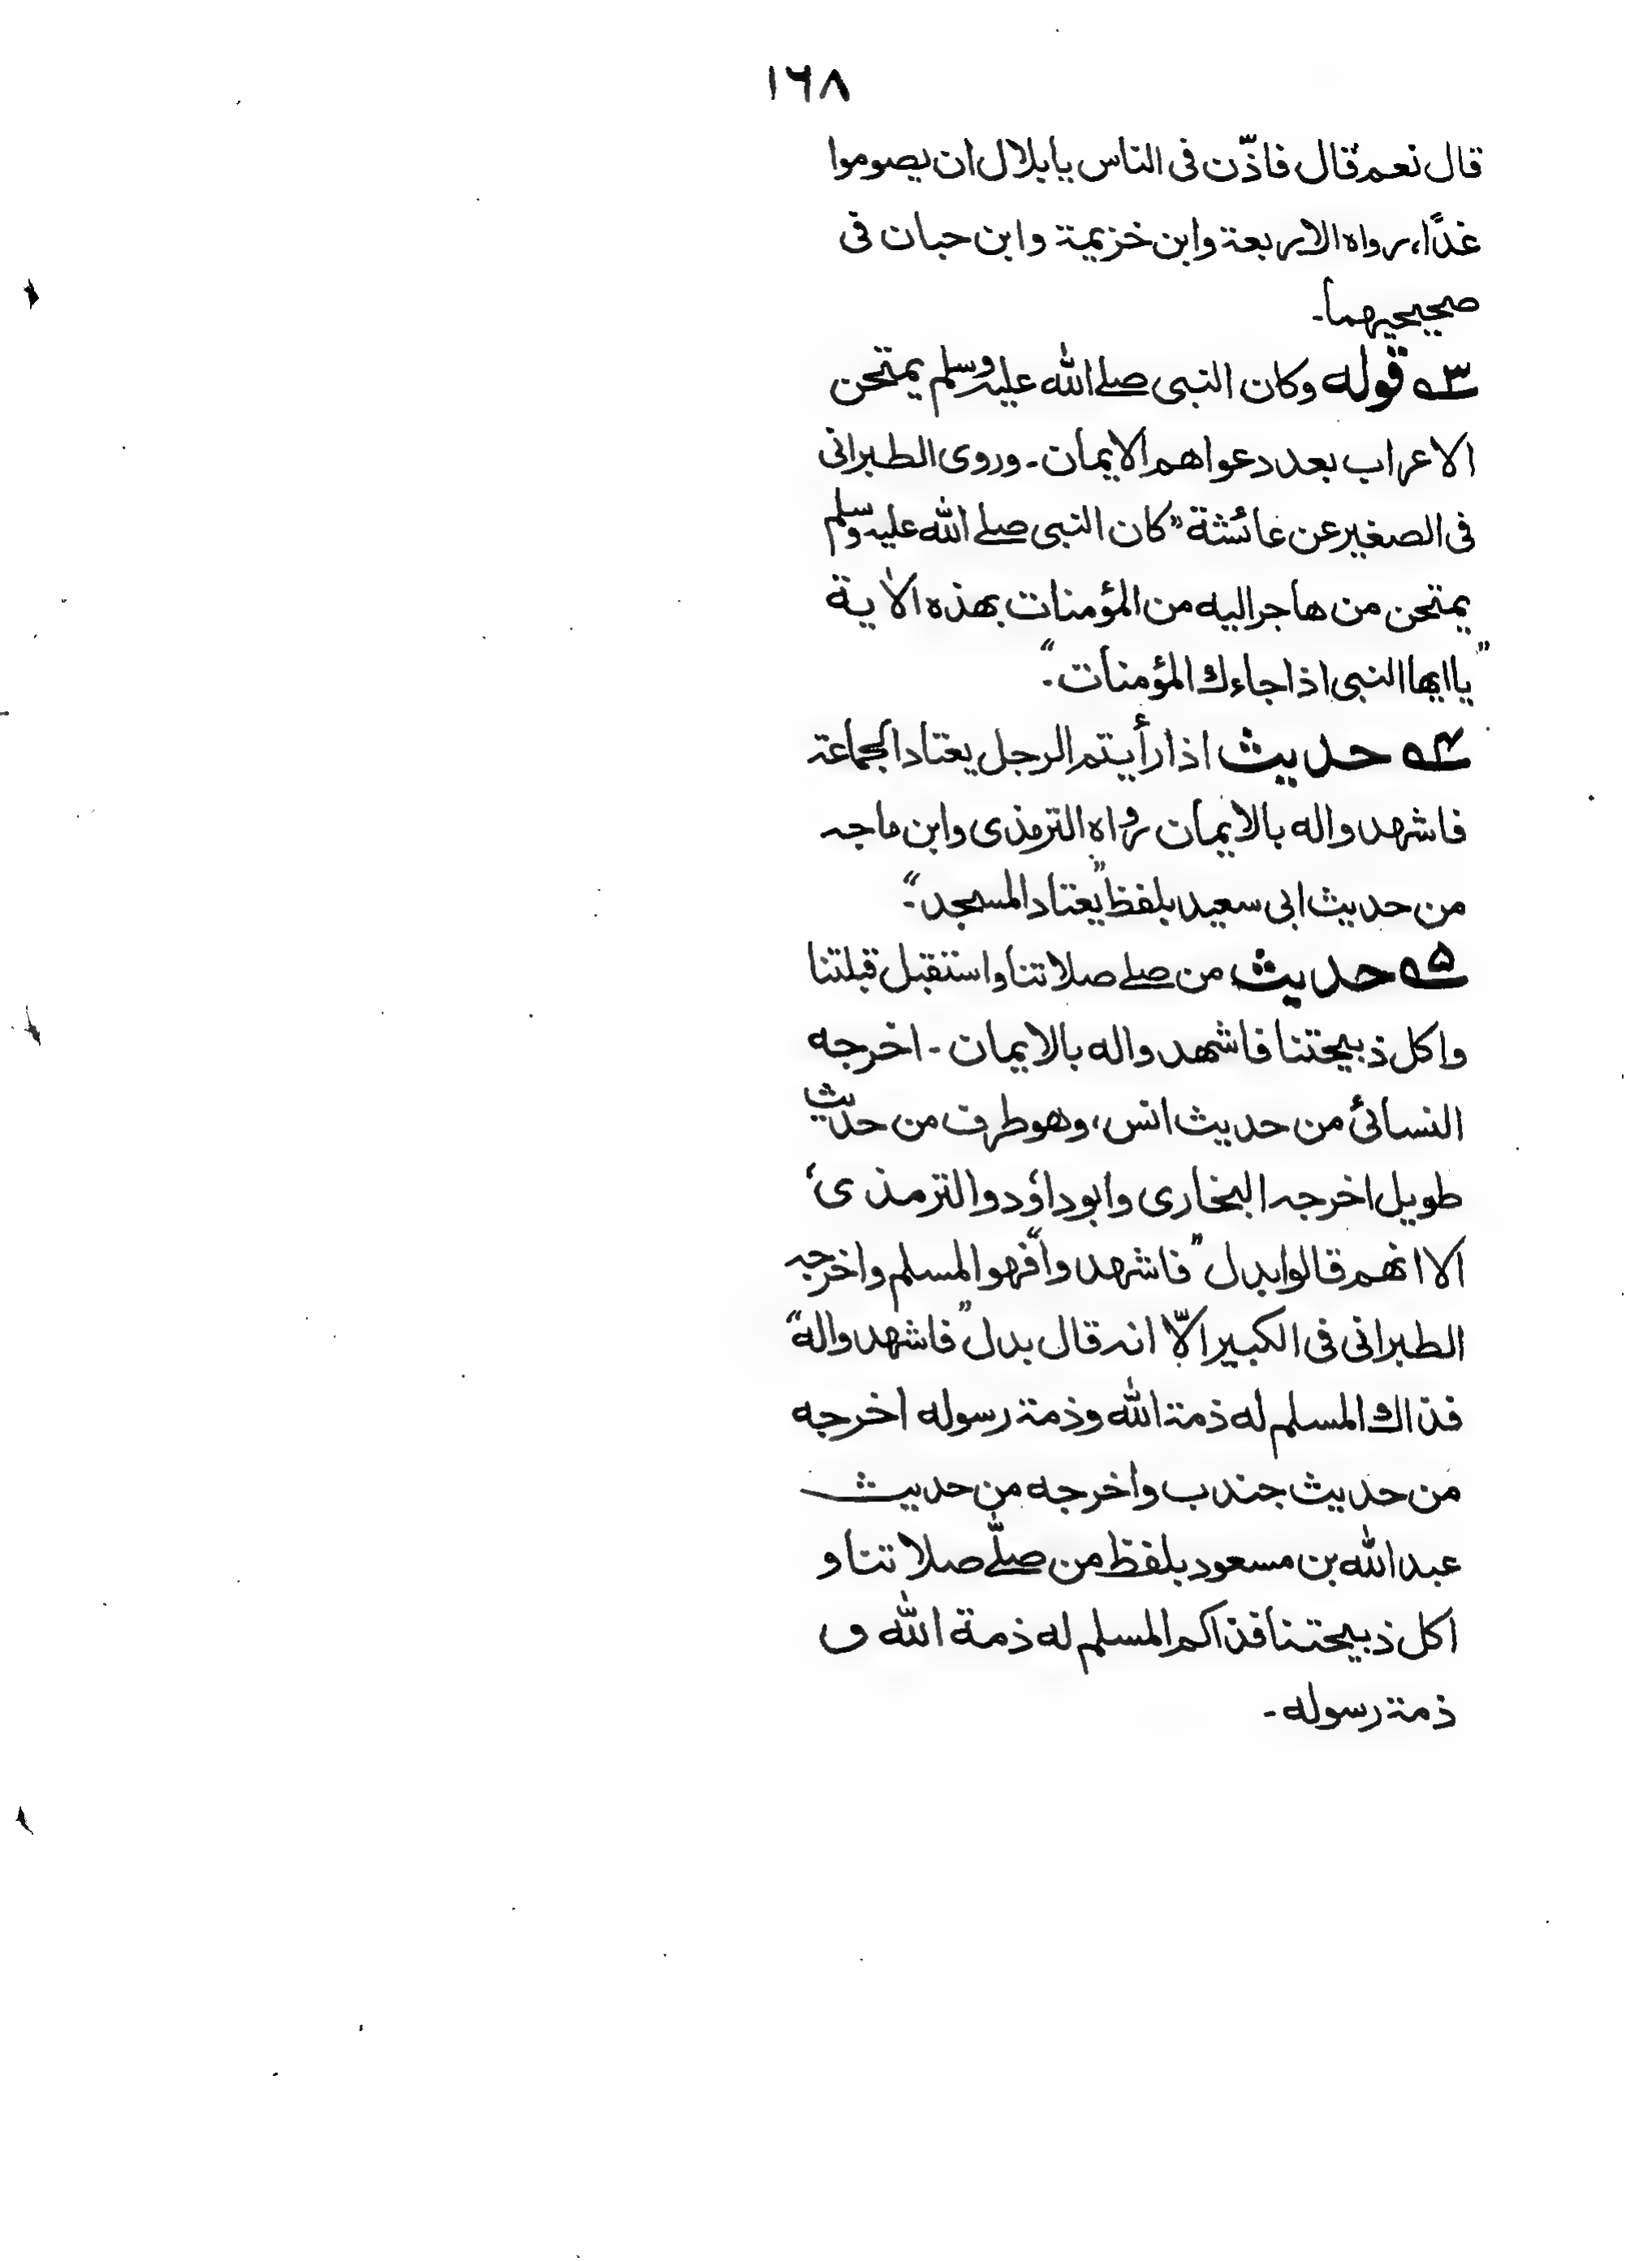 ١٦٨
قال نعم، قال فاذّن فى الناس يا بلال ان يصوموا
غدًا، رواه الاربعة وابن خزيمة وابن حبان فى
صحيحيهما۔
۵۳ قوله وكان النبى صلے الله عليه وسلم يمتحن
الاعراب بعد دعواهم الايمان۔ وروى الطبرانى
فى الصغير عن عائشة "كان النبى صلے الله عليه وسلم
يمتحن من هاجر اليه من المؤمنات بهذه الاٰية
"يا ايها النبى اذا جاءك المؤمنات۔"
۵۴ حديث اذا رأيتم الرجل يعتاد الجماعة
فاشهدوا له بالايمان رواه الترمذى وابن ماجه
من حديث ابى سعيد بلفظ "يعتاد المسجد"۔
۵۵ حديث من صلے صلاتنا واستقبل قبلتنا
واكل ذبيحتنا فاشهدوا له بالايمان۔ اخرجه
النسائى من حديث انس، وهو طرف من حديث
طويل اخرجه البخارى وابو داؤد والترمذى،
الا انهم قالوا بدل "فاشهدوا" فهو المسلم واخرجه
الطبرانى فى الكبير الّا انه قال بدل "فاشهدوا له"
فذاك المسلم له ذمة الله وذمة رسوله اخرجه
من حديث جندب واخرجه من حديث
عبد الله بن مسعود بلفظ من صلّے صلاتنا و
اكل ذبيحتنا فذاكم المسلم له ذمة الله و
ذمة رسوله۔